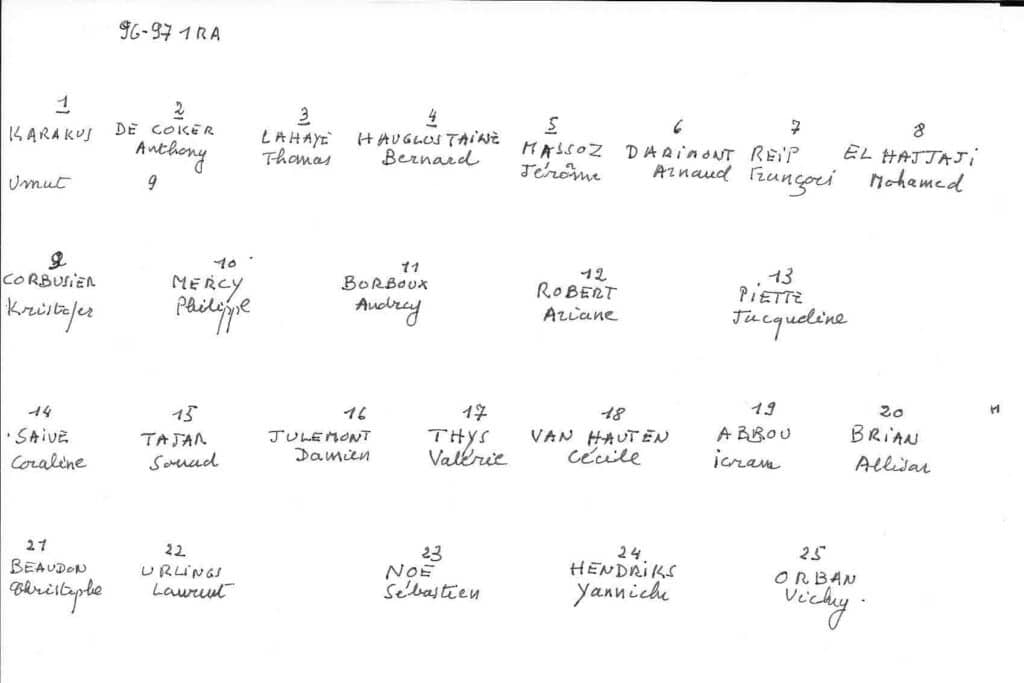 96-97 1RA
1 2 3 4 5 6 7 8
KARAKUS DE COKER LAHAYE HAUGLUSTAINE MASSOZ DARIMONT REIP EL HAJJAJi
Umut Anthony Thomas Bernard Jérôme Arnaud François Mohamed
9
9 10 11 12 13
CORBUSIER MERCY BORBOUX ROBERT PIETTE
Kristofer Philippe Audrey Ariane Jacqueline
14 15 16 17 18 19 20 H
SAIVE TAJAR JULEMONT THYS VAN HAUTEN ABBOU BRIAN
Coraline Souad Damien Valérie Cécile icram Allison
21 22 23 24 25
BEAUDON URLINGS NOE HENDRIKS ORBAN
Christophe Laurent Sébastien Yannick Vicky.